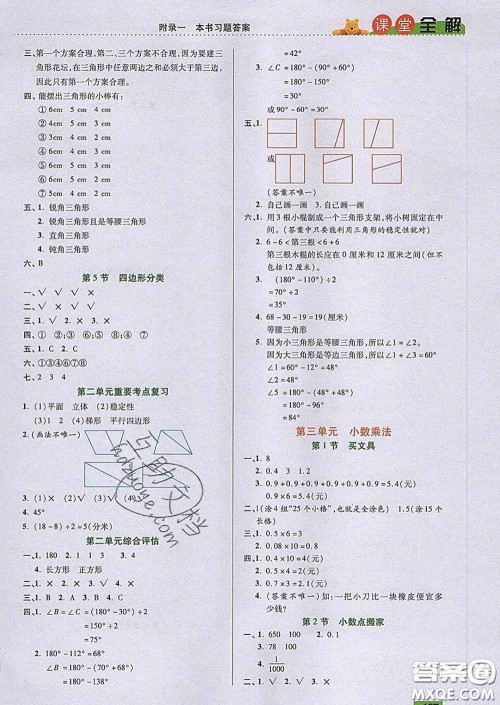 附录一 本书习题答案
课堂全解
三、第一个方案合理。第二、三个方案不合理。因为
在三角形中任意两边之和必须大于第三边,
所以第一个方案合理。
四、能摆出三角形的小棒有:
① 6cm 5cm 4cm
② 6cm 5cm 3cm
③ 6cm 5cm 2cm
④ 6cm 4cm 3cm
⑤ 5cm 4cm 3cm
⑥ 5cm 4cm 2cm
⑦ 4cm 3cm 2cm
五、1. 锐角三角形
2. 锐角三角形且是等腰三角形
3. 直角三角形
4. 钝角三角形
六、B
第5节 四边形分类
一、√ √ × √
二、√ √ × √ ×
三、1. √ 2. × 3. ×
四、① ②③⑥ ⑤⑦⑧
五、1. C 2. C
六、①③④⑥⑦⑧
七、2 3 4
第二单元重要考点复习
1. (1)平面 立体 (2)稳定性
(3)1 2 (4)梯形 平行四边形
2. (画法不唯一)
3. (1)√ (2)× (3)√ (4)
4. 45°
5. (18-8)÷2=5(分米)
第二单元综合评估
一、1. 180 2. 1 1 3 3.
4. 长方形 正方形
二、√ × √ √ ×
三、1. B 2. A 3. C 4. B 5. C
四、1. ∠B=∠C=(180°-30°)÷2
=150°÷2
=75°
2. ∠B=180°-46°×3
=180°-138°
=42°
3. ∠C=180°-(90°+30°)
=180°-120°
=60°
或 90°-30°=60°
五、1.
或
(答案不唯一)
2. 自己画一画 3. 自己画一画
六、1. 用3根小棍制成一个三角形支架,将小树固定在
中间。(答案中只要能利用三角形的稳定性即可)
2. 6-6<第三根<6+6
第三根木棍的长应在0厘米和12厘米之间。(不
包括12厘米。)
3. (180°-110°)÷2
=70°÷2
=35°
4. 6×9-18×2=18(厘米)
等腰三角形
5. 因为小三角形是等腰三角形,所以∠1=∠2。
因为大三角形是等边三角形,所以∠1+∠3=
60°
∠2+∠4=60°
∠2=(180°-144°)÷2=18°
∠4=60°-18°=42°
第三单元 小数乘法
第1节 买文具
一、1. 8
2. 0.4 3. 1.6 4. 乘 加
二、1. × 2. × 3. √
三、1. (涂4组“25个小格”,也就是全涂色) 1.5(涂略)
四、1. 0.5×3=1.5(元)
2. 0.08×10=0.8(元)
3. 0.1×4=0.4(元)
4. 0.8×2=1.6(元)
5. (答案不唯一)如:一把小刀比一块橡皮便宜多
少钱?
第2节 小数点搬家
一、1. 650 100 2. 0.1
3. 右 100
4. 1/1000
二、1. √ 2. √ 3. × 4. √
答案圈
MXQE.COM